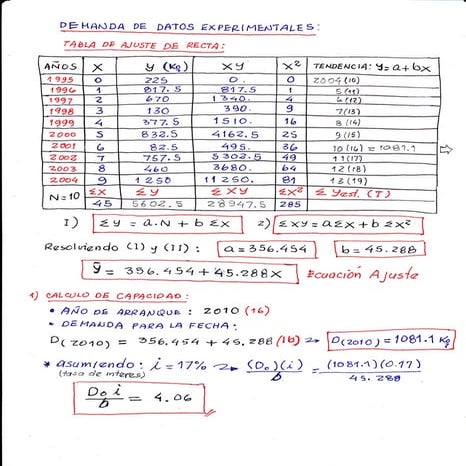 DEMANDA DE DATOS EXPERIMENTALES:
TABLA DE AJUSTE DE RECTA:
AÑOS X y (Kg) XY X² TENDENCIA: y=a+bx
1995 0 225 0. 0 2004 (10)
1996 1 817.5 817.5 1 5 (11)
1997 2 670 1340. 4 6 (12)
1998 3 130 390. 9 7 (13)
1999 4 377.5 1510. 16 8 (14)
2000 5 832.5 4162.5 25 9 (15)
2001 6 82.5 495. 36 10 (16) = 1081.1
2002 7 757.5 5302.5 49 11 (17)
2003 8 460 3680. 64 12 (18)
2004 9 1250 11250. 81 13 (19)
N=10 ΣX Σy ΣXY ΣX² Σ Yest. (T)
45 5602.5 28947.5 285
I) Σy = a.N + b Σx 2) Σxy = aΣx + b Σx²
Resolviendo (1) y (11) : a = 356.454 b = 45.288
ŷ = 356.454 + 45.288X Ecuación Ajuste
1) CALCULO DE CAPACIDAD:
• AÑO DE ARRANQUE : 2010 (16)
• DEMANDA PARA LA FECHA:
D(2010) = 356.454 + 45.288 (16) → D(2010) = 1081.1 Kg
* asumiendo: i = 17% → (D₀)(i)/b = (1081.1)(0.17)/45.288
(tasa de interes)
D₀ i/b = 4.06